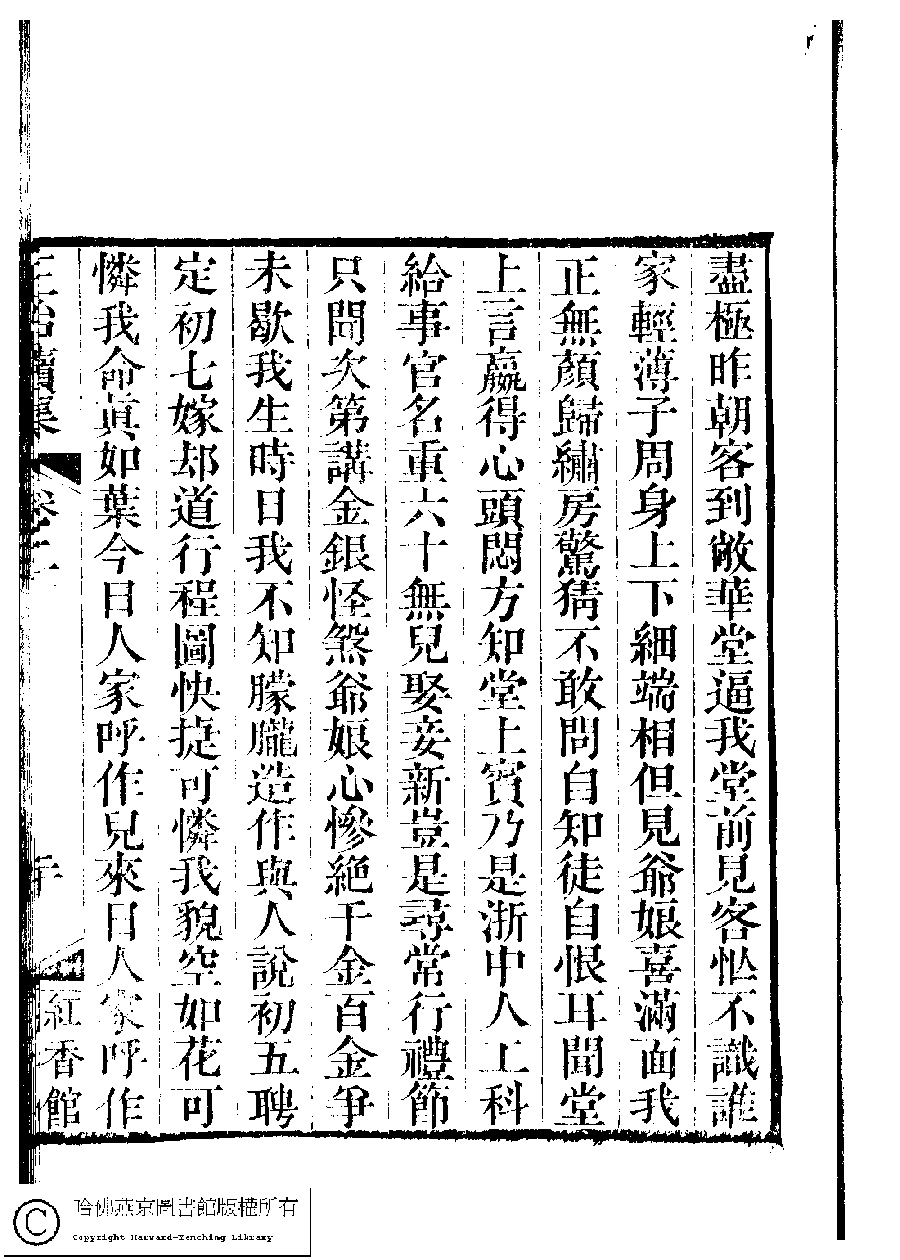 盡極昨朝客到敞華堂逼我堂前見客恠不識誰
家輕薄子周身上下細端相但見爺娘喜滿面我
正無顏歸繡房驚猜不敢問自知徒自恨耳聞堂
上言贏得心頭悶方知堂上賓乃是浙中人工科
給事官名重六十無兒娶妾新豈是尋常行禮節
只聞次第講金銀怪煞爺娘心慘絕千金百金爭
未歇我生時日我不知朦朧造作與人說初五聘
定初七嫁却道行程圖快捷可憐我貌空如花可
憐我命眞如葉今日人家呼作兒來日人家呼作
續集
紅香館
哈佛燕京圖書館版權所有
Copyright Harvard-Yenching Library